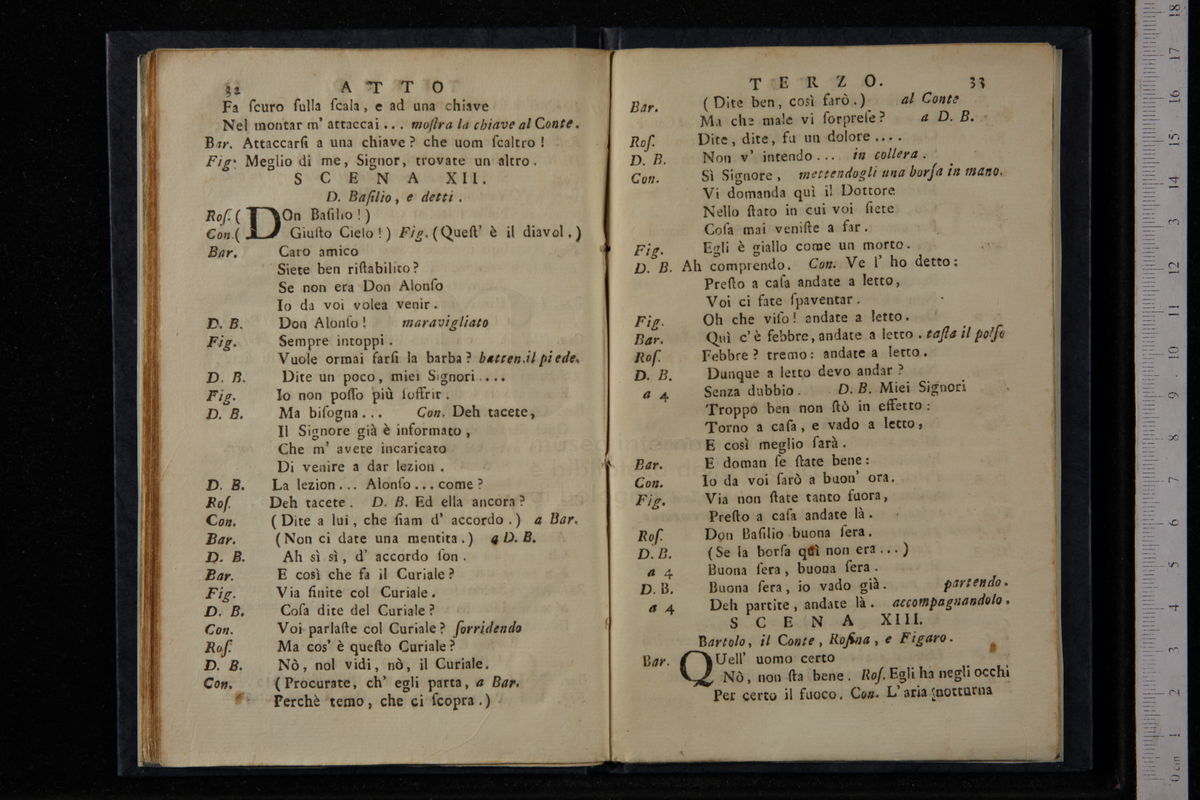 32 ATTO
Fa ſcuro ſulla ſcala, e ad una chiave
Nel montar m' attaccai... moſtra la chiave al Conte.
Bar. Attaccarſi a una chiave? che uom ſcaltro!
Fig. Meglio di me, Signor, trovate un altro.
SCENA XII.
D. Baſilio, e detti.
Roſ. ( DOn Baſilio!)
Con. ( Giuſto Cielo!) Fig. (Queſt' è il diavol.)
Bar. Caro amico
Siete ben riſtabilito?
Se non era Don Alonſo
Io da voi volea venir.
D. B. Don Alonſo! maravigliato
Fig. Sempre intoppi.
Vuole ormai farſi la barba? batten. il piede.
D. B. Dite un poco, miei Signori....
Fig. Io non poſſo più ſoffrir.
D. B. Ma biſogna... Con. Deh tacete,
Il Signore già è informato,
Che m' avete incaricato
Di venire a dar lezion.
D. B. La lezion... Alonſo... come?
Roſ. Deh tacete. D. B. Ed ella ancora?
Con. (Dite a lui, che ſiam d' accordo.) a Bar.
Bar. (Non ci date una mentita.) a D. B.
D. B. Ah sì sì, d' accordo ſon.
Bar. E così che fa il Curiale?
Fig. Via finite col Curiale.
D. B. Coſa dite del Curiale?
Con. Voi parlaſte col Curiale? ſorridendo
Roſ. Ma cos' è queſto Curiale?
D. B. Nò, nol vidi, nò, il Curiale.
Con. (Procurate, ch' egli parta, a Bar.
Perchè temo, che ci ſcopra.)
TERZO. 33
Bar. (Dite ben, così farò.) al Conte
Ma che male vi ſorpreſe? a D. B.
Roſ. Dite, dite, fu un dolore....
D. B. Non v' intendo... in collera.
Con. Sì Signore, mettendogli una borſa in mano.
Vi domanda quì il Dottore
Nello ſtato in cui voi ſiete
Coſa mai veniſte a far.
Fig. Egli è giallo come un morto.
D. B. Ah comprendo. Con. Ve l' ho detto:
Preſto a caſa andate a letto,
Voi ci fate ſpaventar.
Fig. Oh che viſo! andate a letto.
Bar. Quì c' è febbre, andate a letto. taſta il polſo
Roſ. Febbre? tremo: andate a letto.
D. B. Dunque a letto devo andar?
a 4 Senza dubbio. D. B. Miei Signori
Troppo ben non ſtò in effetto:
Torno a caſa, e vado a letto,
E così meglio ſarà.
Bar. E doman ſe ſtate bene:
Con. Io da voi ſarò a buon' ora.
Fig. Via non ſtate tanto fuora,
Preſto a caſa andate là.
Roſ. Don Baſilio buona ſera.
D. B. (Se la borſa quì non era...)
a 4 Buona ſera, buona ſera.
D. B. Buona ſera, io vado già. partendo.
a 4 Deh partite, andate là. accompagnandolo.
SCENA XIII.
Bartolo, il Conte, Roſina, e Figaro.
Bar. QUell' uomo certo
Nò, non ſta bene. Roſ. Egli ha negli occhi
Per certo il fuoco. Con. L' aria notturna